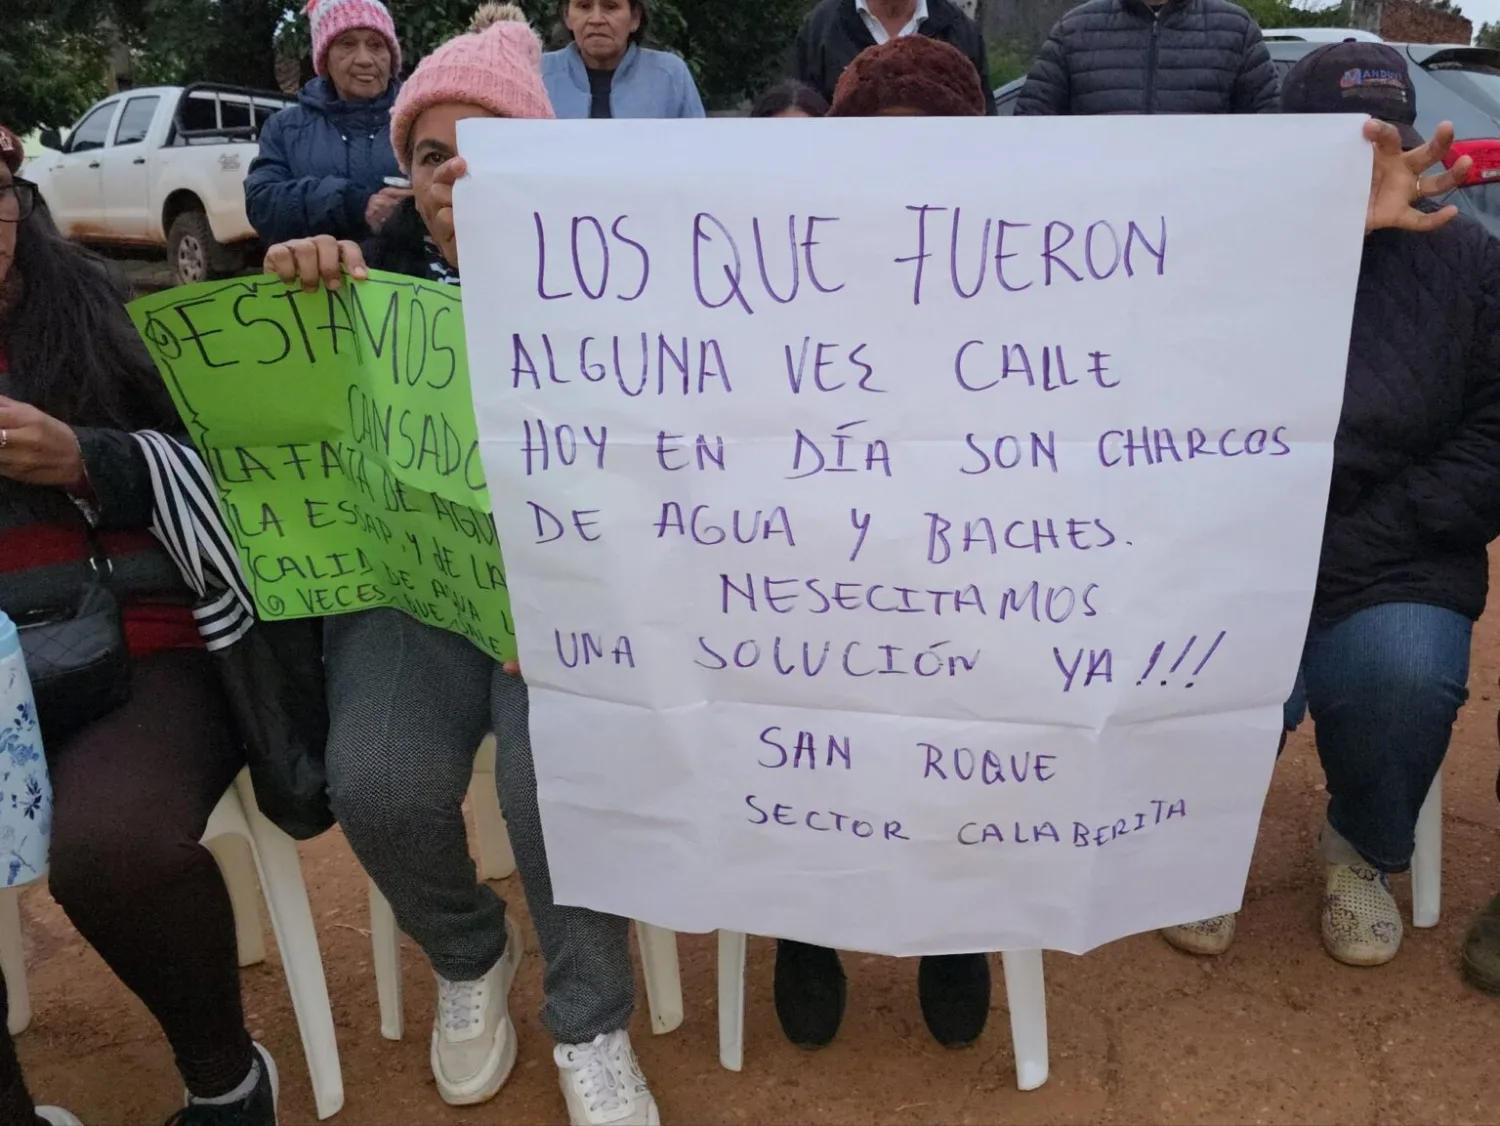 ESTAMOS
CANSADO
LA FALTA DE AGU
LA ESCAP, Y DE LA
CALID DE AGUA
VECES QUE SALE
LOS QUE FUERON
ALGUNA VES CALLE
HOY EN DÍA SON CHARCOS
DE AGUA Y BACHES.
NESECITAMOS
UNA SOLUCIÓN YA!!!
SAN ROQUE
SECTOR CALABERITA